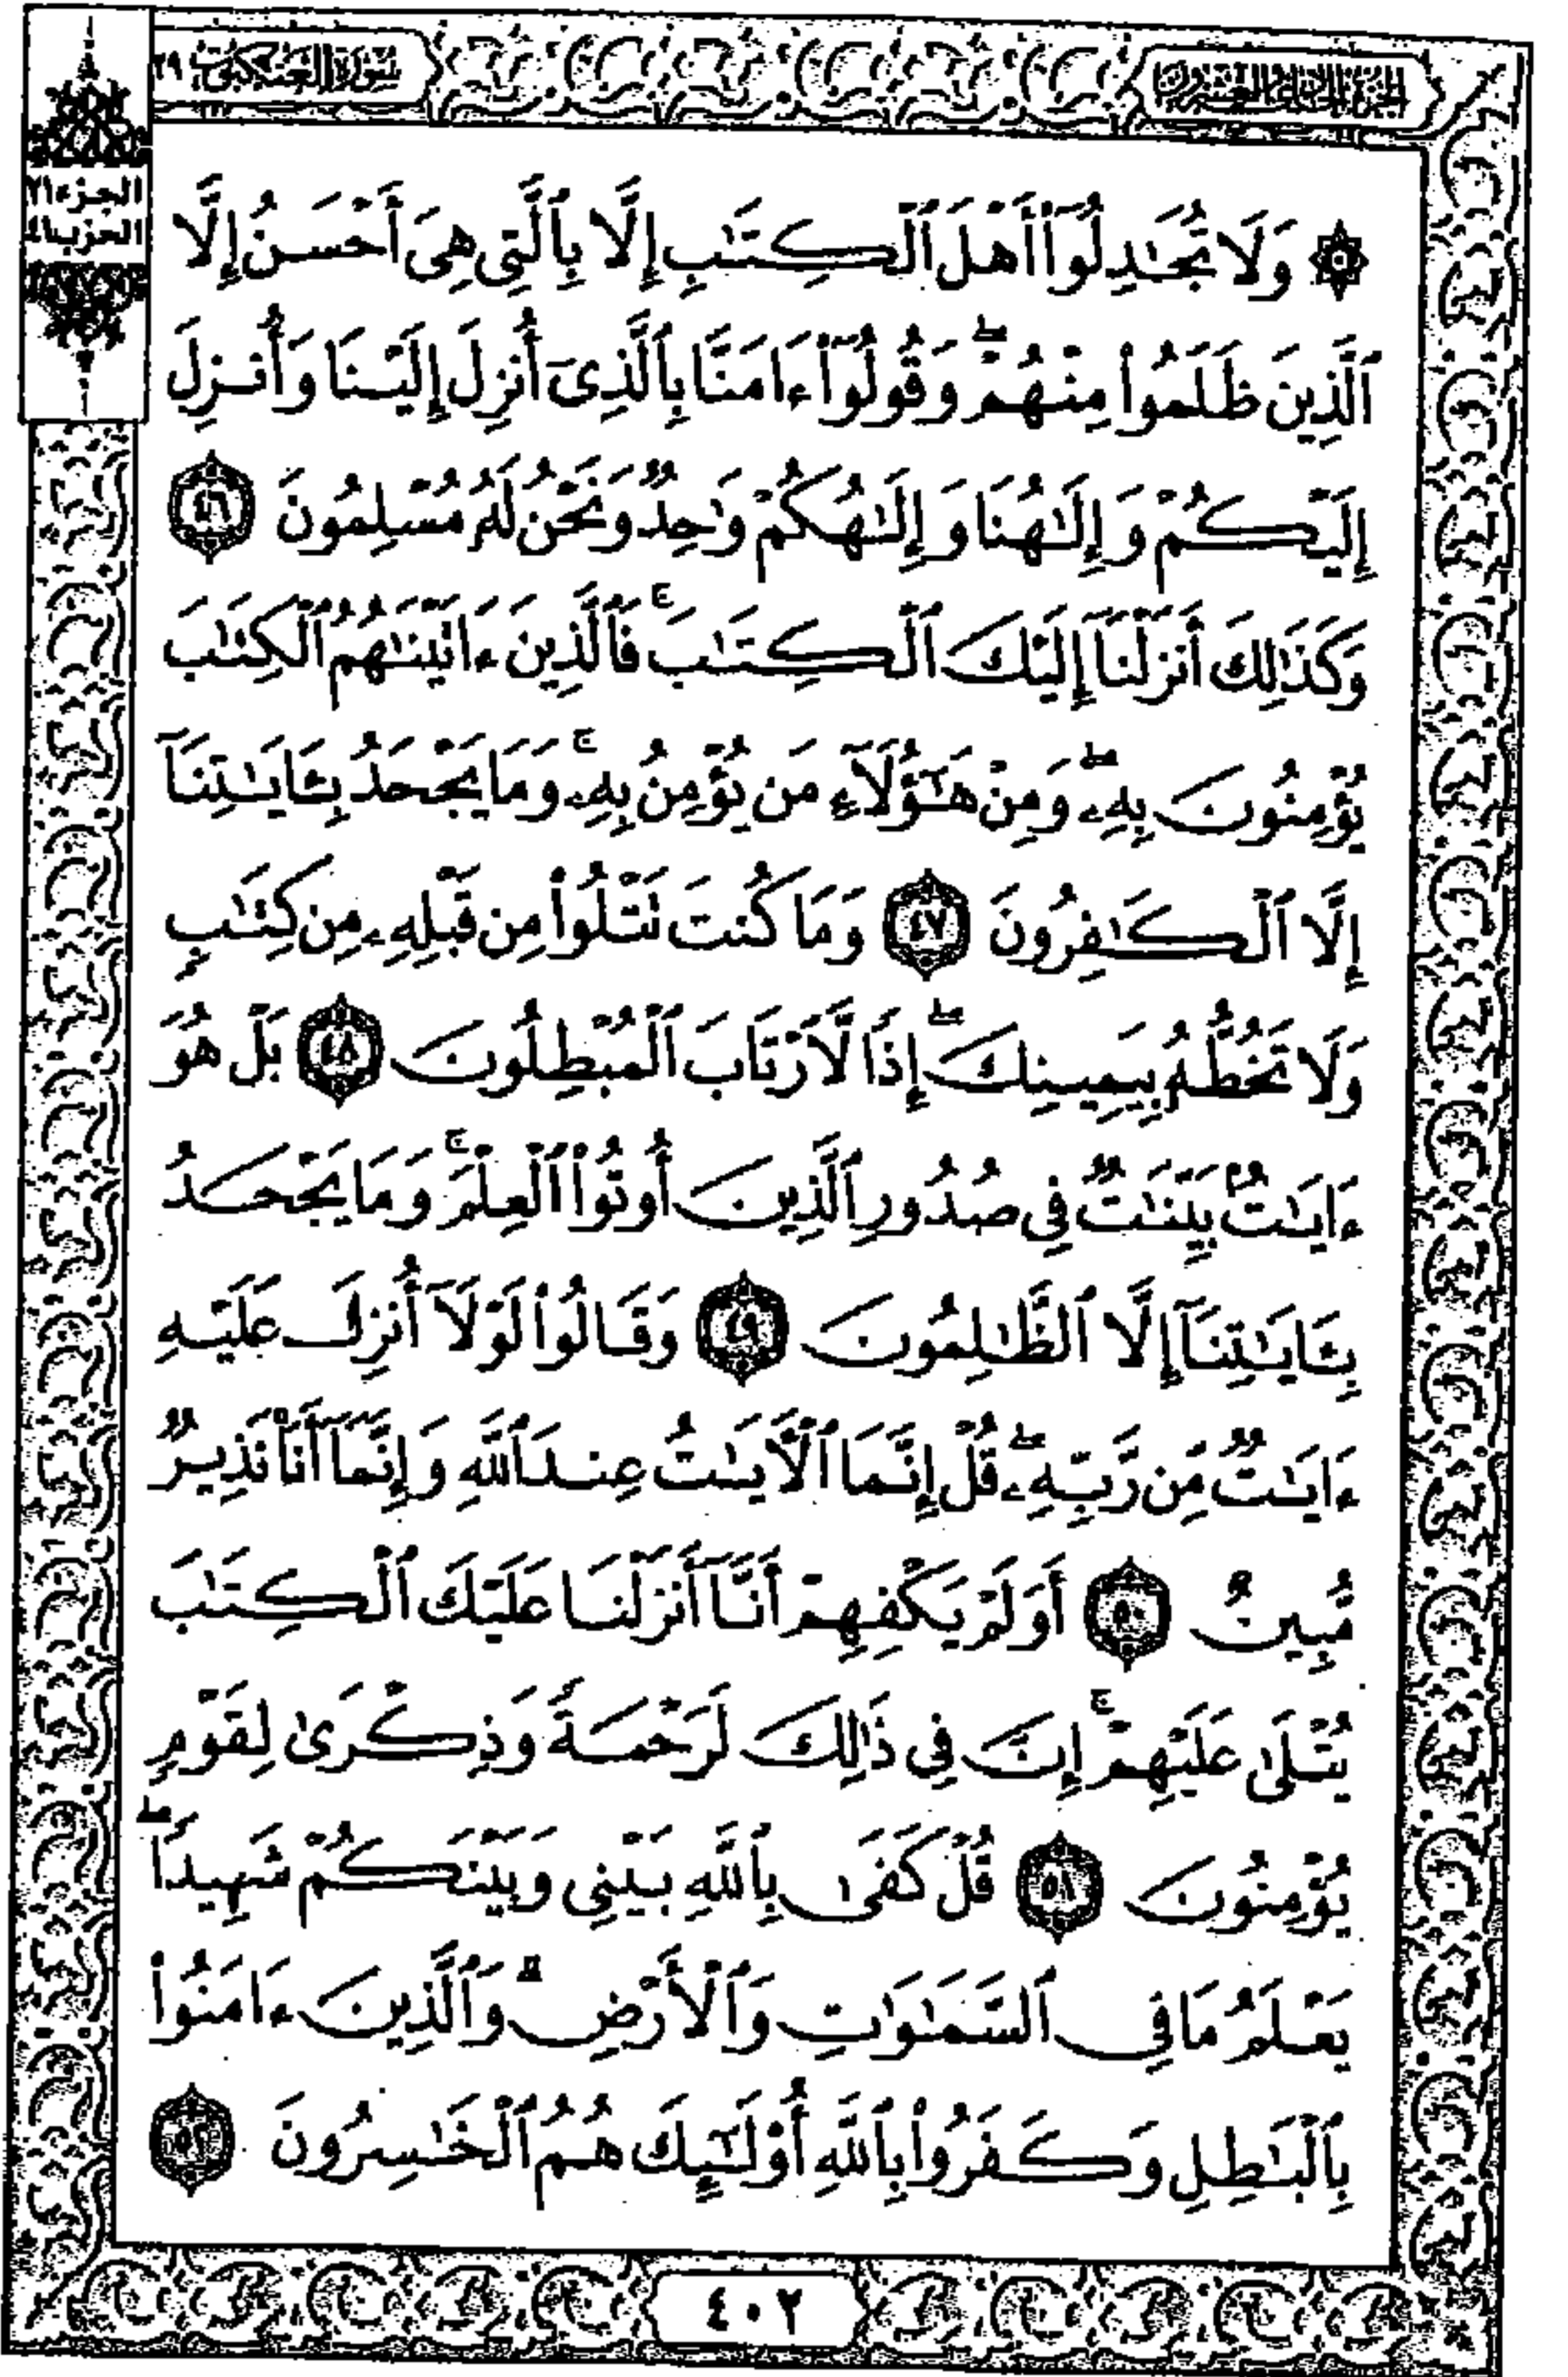 سورة العنكبوت ٢٩
الجزء الحادي والعشرون
الجزء ٢١
الحزب ٤١
۞ وَلَا تُجَٰدِلُوٓا۟ أَهْلَ ٱلْكِتَٰبِ إِلَّا بِٱلَّتِى هِىَ أَحْسَنُ إِلَّا
ٱلَّذِينَ ظَلَمُوا۟ مِنْهُمْ ۖ وَقُولُوٓا۟ ءَامَنَّا بِٱلَّذِىٓ أُنزِلَ إِلَيْنَا وَأُنزِلَ
إِلَيْكُمْ وَإِلَٰهُنَا وَإِلَٰهُكُمْ وَٰحِدٌ وَنَحْنُ لَهُۥ مُسْلِمُونَ ٤٦
وَكَذَٰلِكَ أَنزَلْنَآ إِلَيْكَ ٱلْكِتَٰبَ ۚ فَٱلَّذِينَ ءَاتَيْنَٰهُمُ ٱلْكِتَٰبَ
يُؤْمِنُونَ بِهِۦ ۖ وَمِنْ هَٰٓؤُلَآءِ مَن يُؤْمِنُ بِهِۦ ۚ وَمَا يَجْحَدُ بِـَٔايَٰتِنَآ
إِلَّا ٱلْكَٰفِرُونَ ٤٧ وَمَا كُنتَ تَتْلُوا۟ مِن قَبْلِهِۦ مِن كِتَٰبٍ
وَلَا تَخُطُّهُۥ بِيَمِينِكَ ۖ إِذًا لَّٱرْتَابَ ٱلْمُبْطِلُونَ ٤٨ بَلْ هُوَ
ءَايَٰتٌۢ بَيِّنَٰتٌ فِى صُدُورِ ٱلَّذِينَ أُوتُوا۟ ٱلْعِلْمَ ۚ وَمَا يَجْحَدُ
بِـَٔايَٰتِنَآ إِلَّا ٱلظَّٰلِمُونَ ٤٩ وَقَالُوا۟ لَوْلَآ أُنزِلَ عَلَيْهِ
ءَايَٰتٌ مِّن رَّبِّهِۦ ۖ قُلْ إِنَّمَا ٱلْـَٔايَٰتُ عِندَ ٱللَّهِ وَإِنَّمَآ أَنَا۠ نَذِيرٌ
مُّبِينٌ ٥٠ أَوَلَمْ يَكْفِهِمْ أَنَّآ أَنزَلْنَا عَلَيْكَ ٱلْكِتَٰبَ
يُتْلَىٰ عَلَيْهِمْ ۚ إِنَّ فِى ذَٰلِكَ لَرَحْمَةً وَذِكْرَىٰ لِقَوْمٍ
يُؤْمِنُونَ ٥١ قُلْ كَفَىٰ بِٱللَّهِ بَيْنِى وَبَيْنَكُمْ شَهِيدًا ۖ
يَعْلَمُ مَا فِى ٱلسَّمَٰوَٰتِ وَٱلْأَرْضِ ۗ وَٱلَّذِينَ ءَامَنُوا۟
بِٱلْبَٰطِلِ وَكَفَرُوا۟ بِٱللَّهِ أُو۟لَٰٓئِكَ هُمُ ٱلْخَٰسِرُونَ ٥٢
٤٠٢